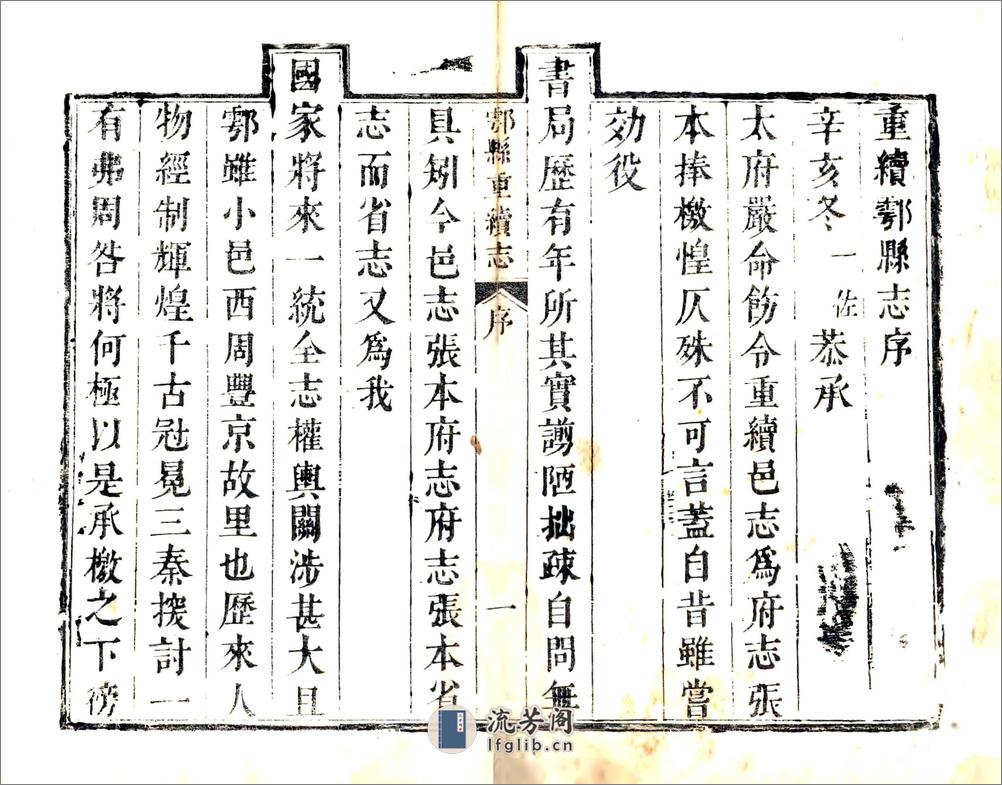 重續鄠縣志序
辛亥冬一佐恭承
太府嚴命飭令重續邑志爲府志張
本捧檄惶仄殊不可言蓋自昔雖嘗
効役
書局歷有年所其實謭陋拙疎自問無
鄠縣重續志 序 一
具矧今邑志張本府志府志張本省
志而省志又爲我
國家將來一統全志權輿關涉甚大且
鄠雖小邑西周豐京故里也歷來人
物經制輝煌千古冠冕三秦援討一
有弗周咎將何極以是承檄之下徬
流芳阁
lfglib.cn